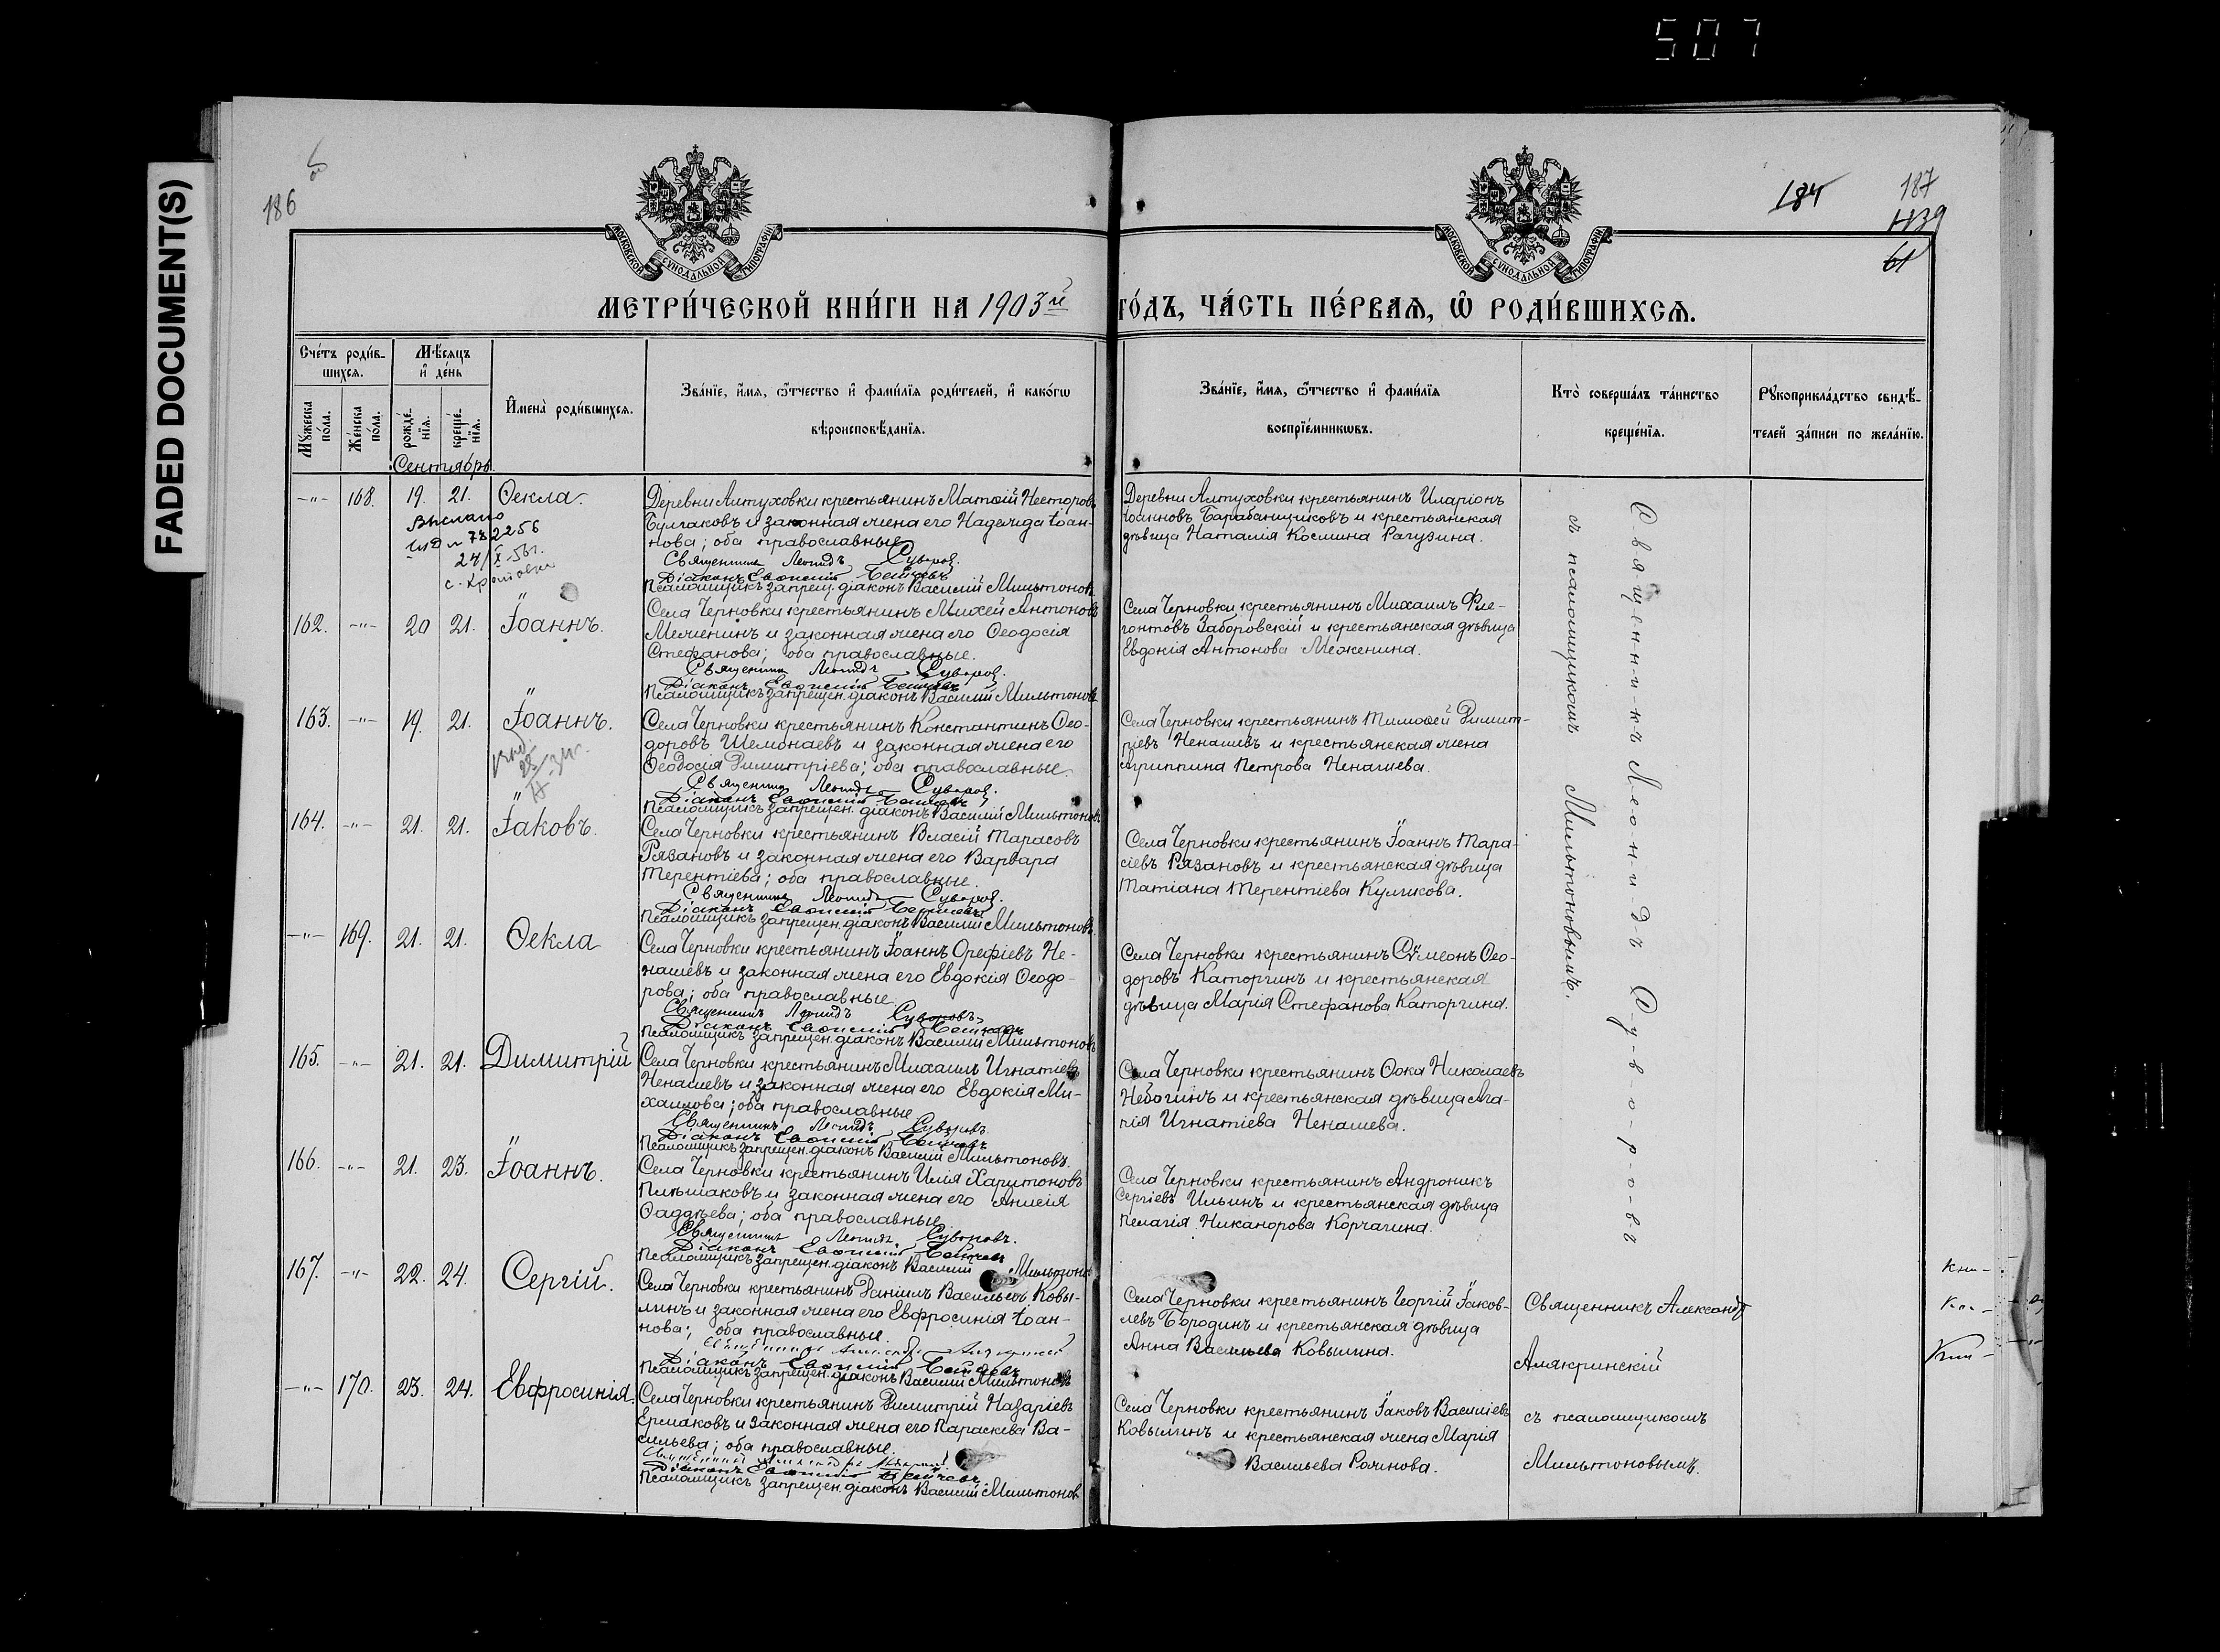 507
FADED DOCUMENT(S)
186
184
187
61
МОСКОВСКОЙ СѴНОДАЛЬНОЙ ТИПОГРАФІИ
МОСКОВСКОЙ СѴНОДАЛЬНОЙ ТИПОГРАФІИ
МЕТРИ́ЧЕСКОЙ КНИ́ГИ НА 1903й ГО́ДЪ, ЧА́СТЬ ПЕ́РВАѦ, Ѡ҆ РОДИ́ВШИХСѦ.
Сче́тъ роди́в-
шихсѧ.
Мꙋ́жеска по́ла.
Же́нска по́ла.
Мѣ́сѧцъ
и҆ де́нь
рожде́-
нїѧ.
креще́-
нїѧ.
И҆мена̀ роди́вшихсѧ.
Зва́нїе, и҆́мѧ, ѻ҆́тчество и҆ фами́лїѧ роди́телей, и҆ како́гѡ
вѣроисповѣ́данїѧ.
Зва́нїе, и҆́мѧ, ѻ҆́тчество и҆ фами́лїѧ
воспрїе́мникѡвъ.
Кто̀ соверша́лъ та́инство
креще́нїѧ.
Рꙋкоприкла́дство свидѣ́-
телей за́писи по жела́нїю.
Сентябрь
-"- 168. 19. 21. Ѳекла.
Выслано
24/X-56г.
Деревни Алтуховки крестьянинъ Матѳій Несторовъ
Булгаковъ и законная жена его Надежда Іоан-
нова; оба православные.
Священникъ Леонидъ Суворовъ.
Діаконъ Евѳимій
Псаломщикъ запрещ. діаконъ Василій Мильтоновъ.
Деревни Алтуховки крестьянинъ Иларіонъ
Іоанновъ Барабанщиковъ и крестьянская
дѣвица Наталія Космина Рагузина.
Священникъ Леонидъ Суворовъ
съ псаломщикомъ Мильтоновымъ.
162. -"- 20 21. Іоаннъ.
Села Черновки крестьянинъ Михей Антоновъ
и законная жена его Ѳеодосія
Стефанова; оба православные.
Священникъ Леонидъ Суворовъ.
Діаконъ Евѳимій
Псаломщикъ запрещен. діаконъ Василій Мильтоновъ
Села Черновки крестьянинъ Михаилъ Фле-
гонтовъ Заборовскій и крестьянская дѣвица
Евдокія Антонова Меженина.
163. -"- 19. 21. Іоаннъ.
Села Черновки крестьянинъ Константинъ Ѳео-
доровъ Шелонаевъ и законная жена его
Ѳеодосія Димитріева; оба православные.
Священникъ Леонидъ Суворовъ.
Діаконъ Евѳимій
Псаломщикъ запрещен. діаконъ Василій Мильтоновъ
Села Черновки крестьянинъ Тимоѳей Димит-
ріевъ Ненашевъ и крестьянская жена
Агриппина Петрова Ненашева.
164. -"- 21. 21. Іаковъ.
Села Черновки крестьянинъ Власій Тарасовъ
Рязановъ и законная жена его Варвара
Терентіева; оба православные.
Священникъ Леонидъ Суворовъ.
Діаконъ Евѳимій
Псаломщикъ запрещен. діаконъ Василій Мильтоновъ.
Села Черновки крестьянинъ Іоаннъ Тара-
сіевъ Рязановъ и крестьянская дѣвица
Татіана Терентіева Куликова.
-"- 169. 21. 21. Ѳекла
Села Черновки крестьянинъ Іоаннъ Орефіевъ Не-
нашевъ и законная жена его Евдокія Ѳеодо-
рова; оба православные.
Священникъ Леонидъ Суворовъ.
Діаконъ Евѳимій
Псаломщикъ запрещен. діаконъ Василій Мильтоновъ
Села Черновки крестьянинъ Сѵмеонъ Ѳео-
доровъ Каторгинъ и крестьянская
дѣвица Марія Стефанова Каторгина.
165. -"- 21. 21. Димитрій
Села Черновки крестьянинъ Михаилъ Игнатіевъ
Ненашевъ и законная жена его Евдокія Ми-
хаилова; оба православные
Священникъ Леонидъ Суворовъ.
Діаконъ Евѳимій
Псаломщикъ запрещен. діаконъ Василій Мильтоновъ.
Села Черновки крестьянинъ Ѳока Николаевъ
Небогинъ и крестьянская дѣвица Ага-
пія Игнатіева Ненашева.
166. -"- 21. 23. Іоаннъ.
Села Черновки крестьянинъ Илія Харитоновъ
и законная жена его Анисія
Ѳаддѣева; оба православные
Священникъ Леонидъ Суворовъ.
Діаконъ Евѳимій
Псаломщикъ запрещен. діаконъ Василій Мильтоновъ
Села Черновки крестьянинъ Андроникъ
Сергіевъ Ильинъ и крестьянская дѣвица
Пелагія Никанорова Корчагина.
167. -"- 22. 24. Сергій.
Села Черновки крестьянинъ Даніилъ Васильевъ Ковы-
линъ и законная жена его Евфросинія Іоан-
нова; оба православные.
Діаконъ Евѳимій
Псаломщикъ запрещен. діаконъ Василій Мильтоновъ
Села Черновки крестьянинъ Георгій Іаков-
левъ Бородинъ и крестьянская дѣвица
Анна Васильева Ковылина.
Священникъ Александръ
Алякринскій
съ псаломщикомъ
Мильтоновымъ.
-"- 170. 23. 24. Евфросинія.
Села Черновки крестьянинъ Димитрій Назаріевъ
Ермаковъ и законная жена его Параскева Ва-
сильева; оба православные.
Діаконъ Евѳимій
Псаломщикъ запрещен. діаконъ Василій Мильтоновъ
Села Черновки крестьянинъ Іаковъ Василіевъ
Ковылинъ и крестьянская жена Марія
Васильева Рожнова.